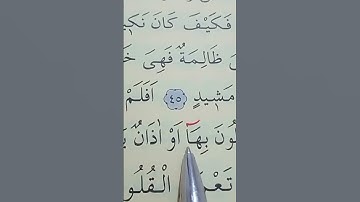 فَكَيْفَ كَانَ
ظَالِمَةٌ فَهِيَ
مَشٖيدٍ ﴿٤٥﴾ اَفَلَمْ
بِهَٓا اَوْ اٰذَانٌ
الْقُلُو